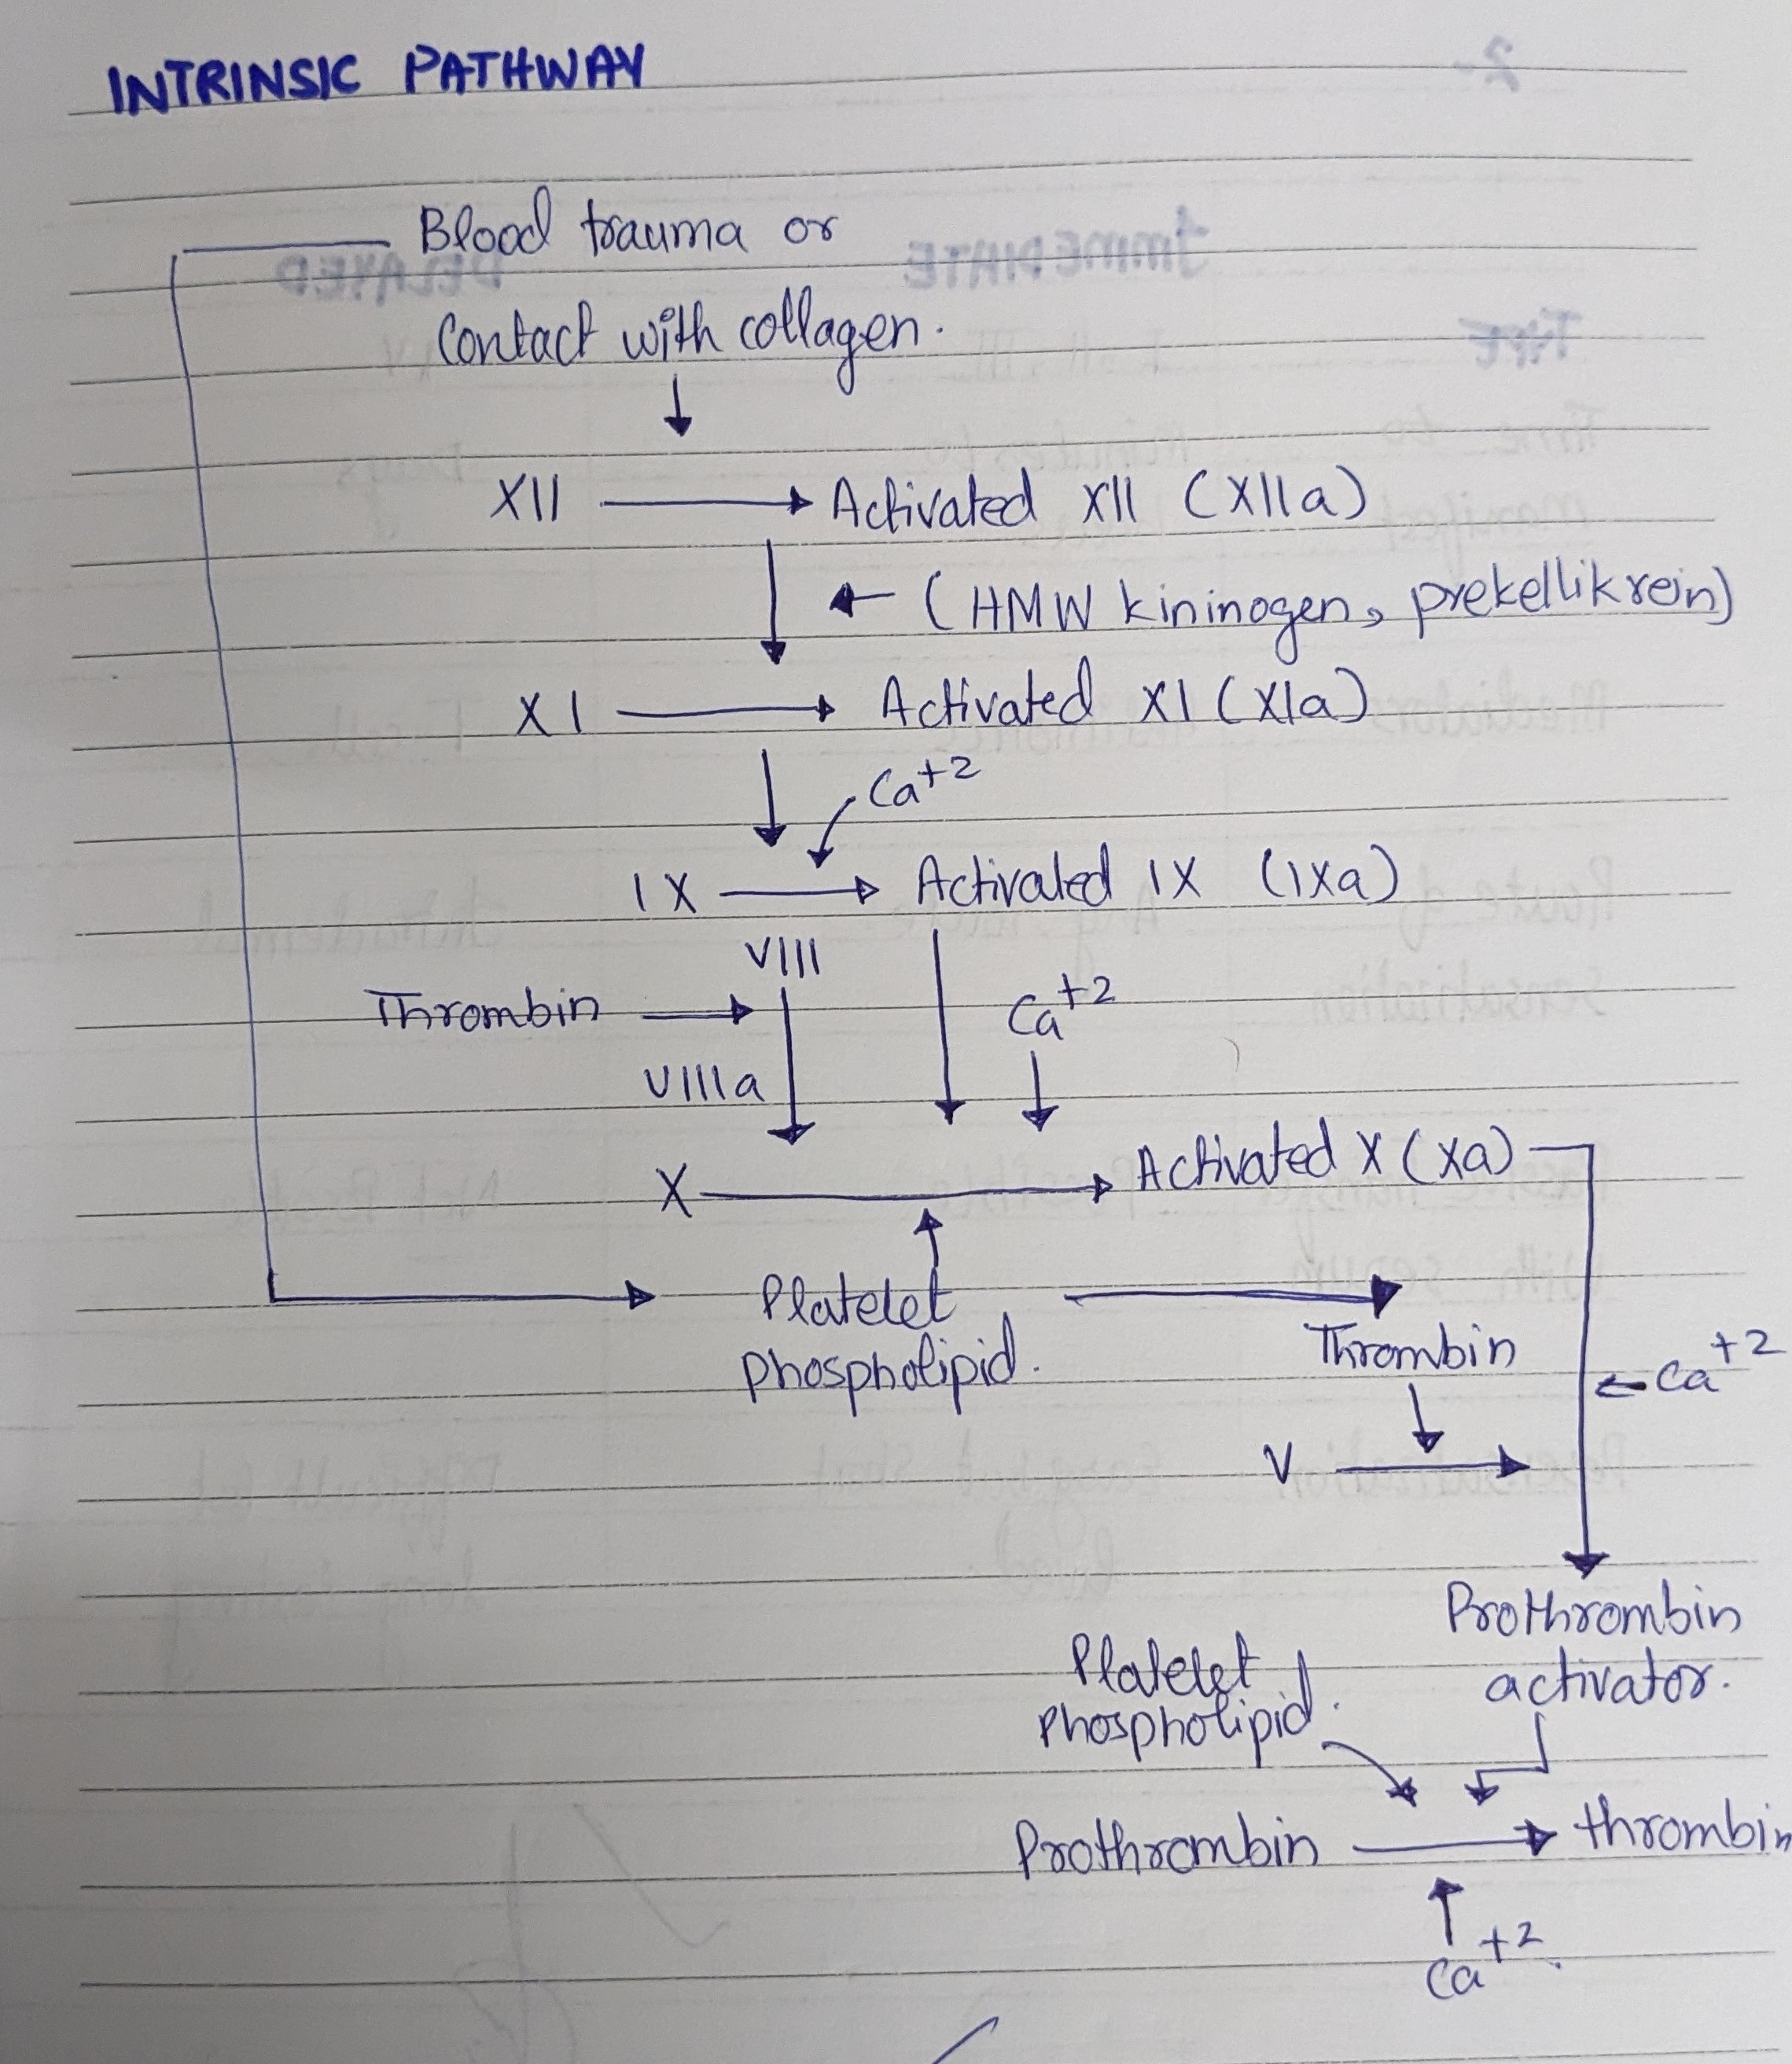 INTRINSIC PATHWAY
Blood trauma or
Contact with collagen.
XII → Activated XII (XIIa)
← (HMW kininogen, prekellikrein)
XI → Activated XI (XIa)
Ca+2
IX → Activated IX (IXa)
VIII
Thrombin →
Ca+2
VIIIa
X → Activated X (Xa)
Platelet →
phospholipid.
Thrombin
← Ca+2
V →
Prothrombin
activator.
Platelet
Phospholipid.
Prothrombin → thrombin
Ca+2.